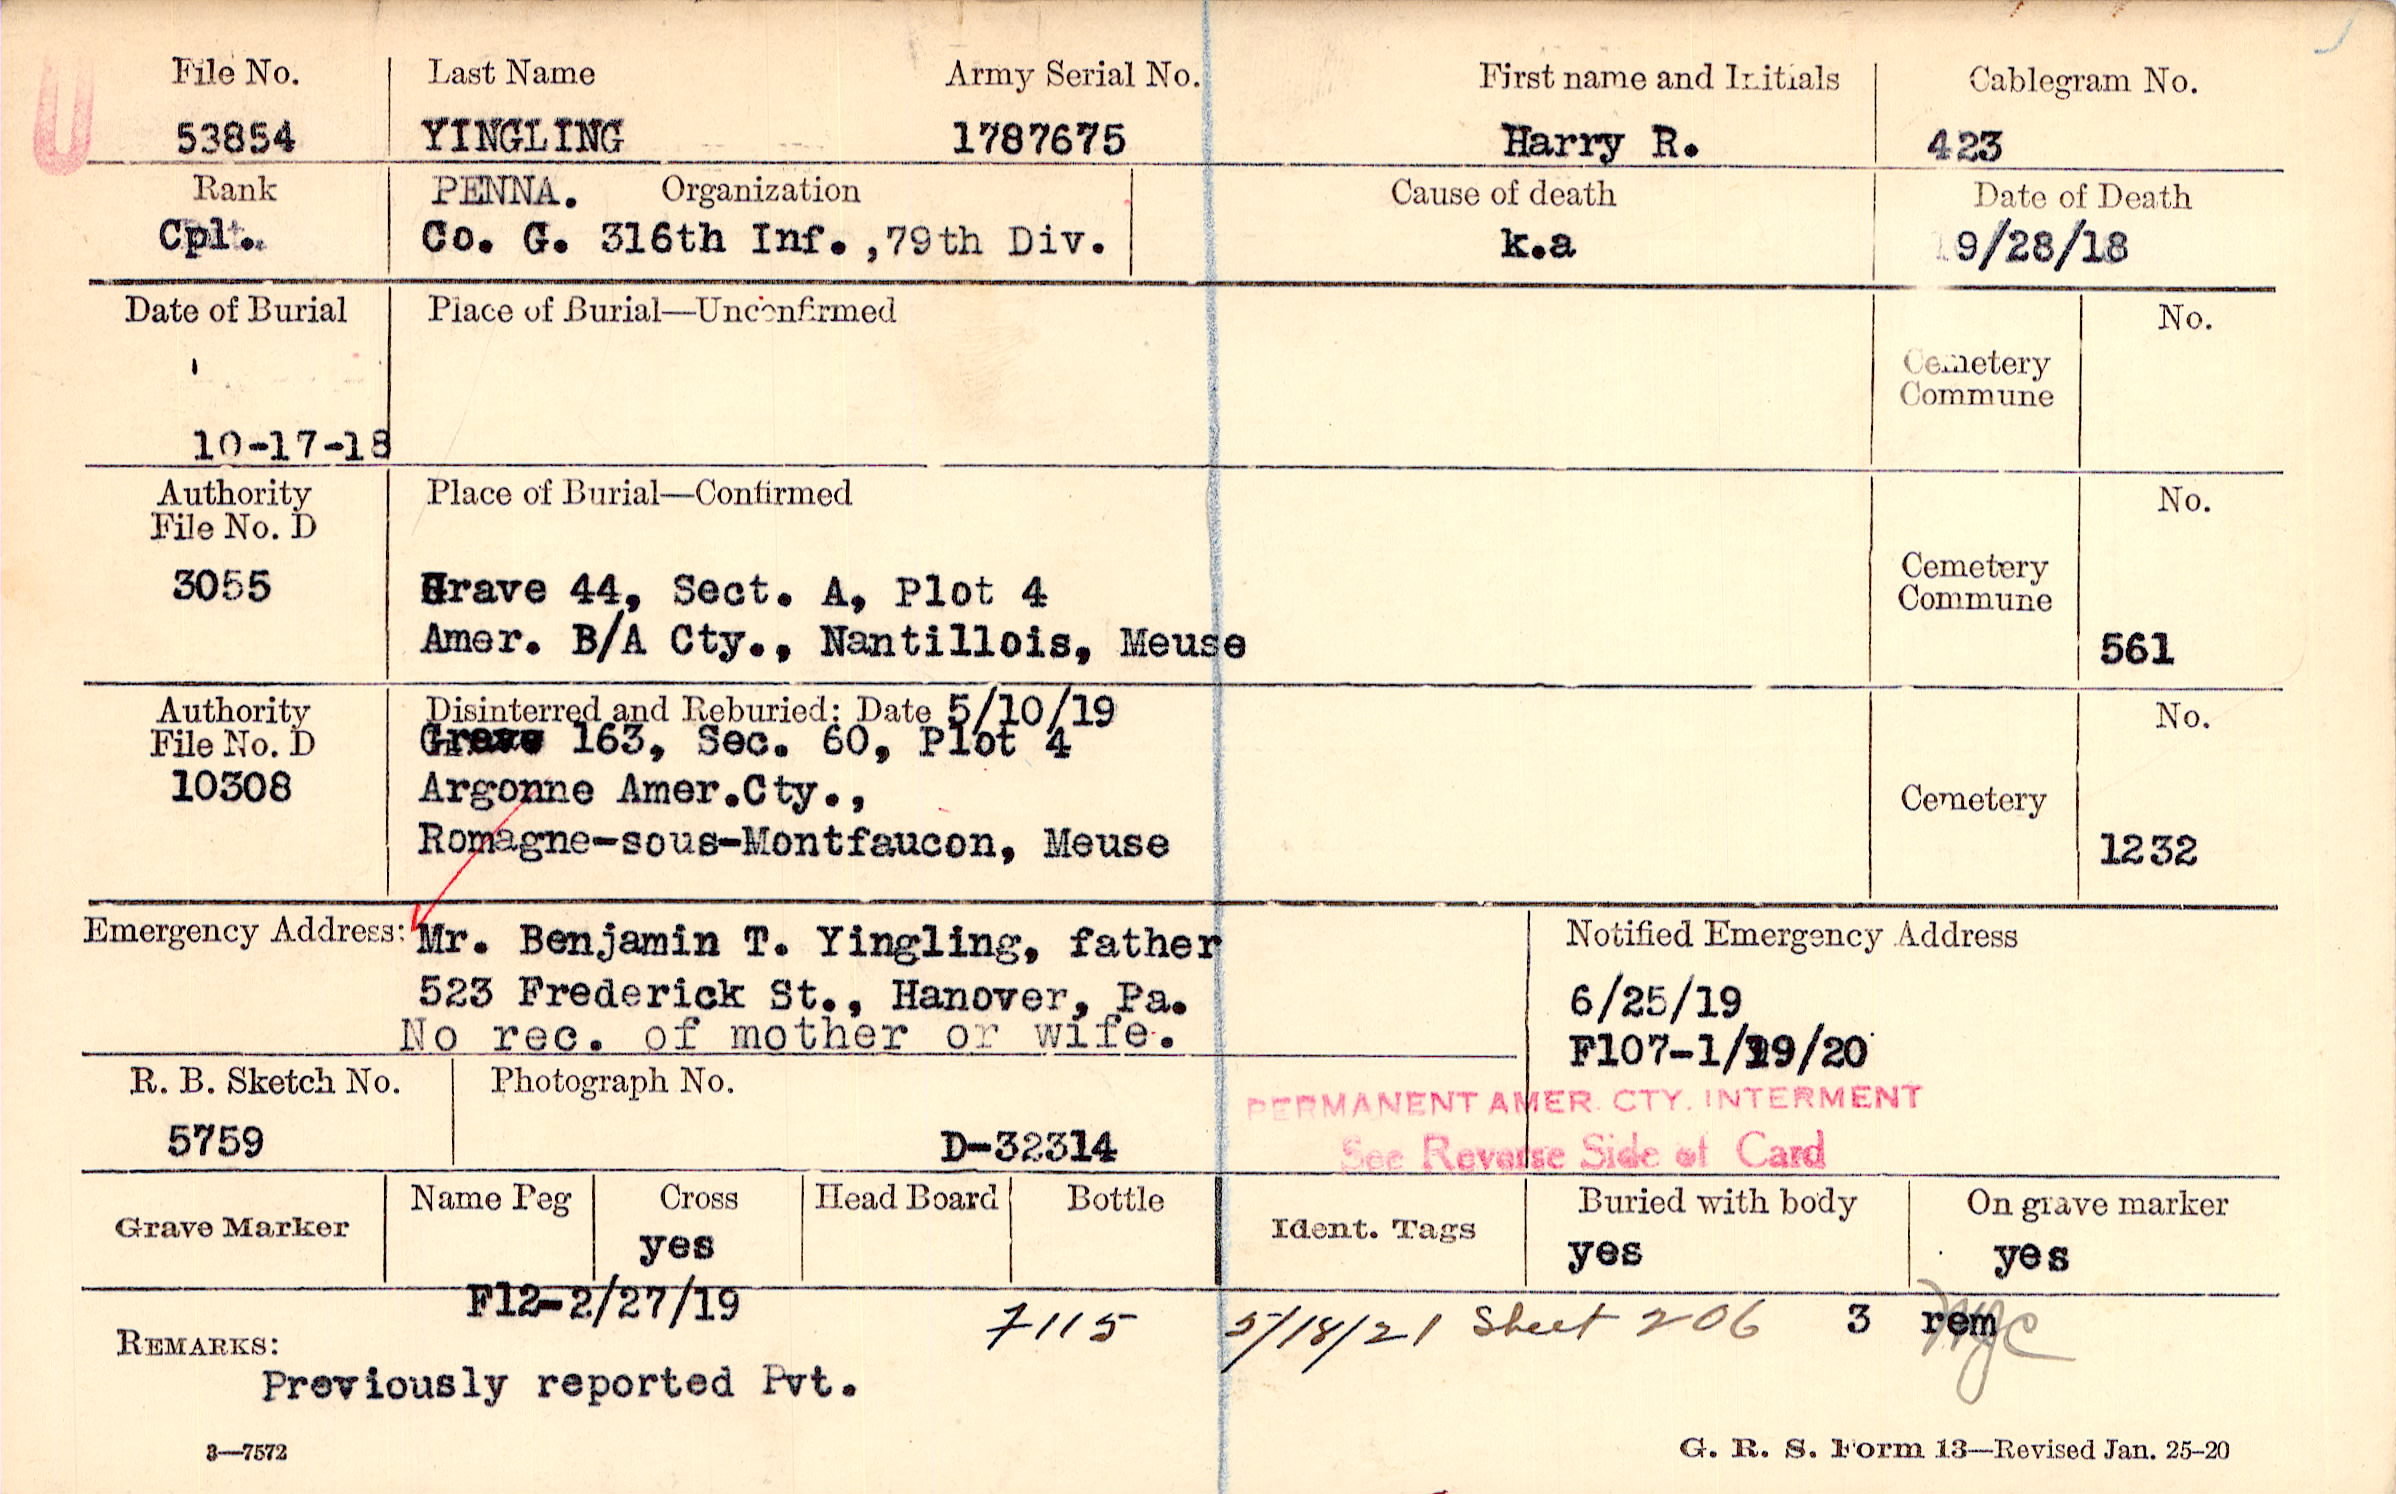 File No. Last Name Army Serial No. First name and Initials Cablegram No.
53854 YINGLING 1787675 Harry R. 423
Rank PENNA. Organization Cause of death Date of Death
Cpl. Co. G. 316th Inf.,79th Div. k.a 9/28/18
Date of Burial Place of Burial—Unconfirmed No.
Cemetery
Commune
10-17-18
Authority Place of Burial—Confirmed No.
File No. D
3055 Grave 44, Sect. A, Plot 4 Cemetery
Commune
Amer. B/A Cty., Nantillois, Meuse 561
Authority Disinterred and Reburied: Date 5/10/19 No.
File No. D Grave 163, Sec. 60, Plot 4
10308 Argonne Amer.Cty., Cemetery
Romagne-sous-Montfaucon, Meuse 1232
Emergency Address: Mr. Benjamin T. Yingling, father Notified Emergency Address
523 Frederick St., Hanover, Pa. 6/25/19
No rec. of mother or wife. F107-1/19/20
R. B. Sketch No. Photograph No. PERMANENT AMER. CTY. INTERMENT
5759 D-32314 See Reverse Side of Card
Grave Marker Name Peg Cross Head Board Bottle Ident. Tags Buried with body On grave marker
yes yes yes
F12-2/27/19 7115 5/18/21 Sheet 206 3 rem
REMARKS:
Previously reported Pvt.
3—7572 G. R. S. Form 13—Revised Jan. 25-20